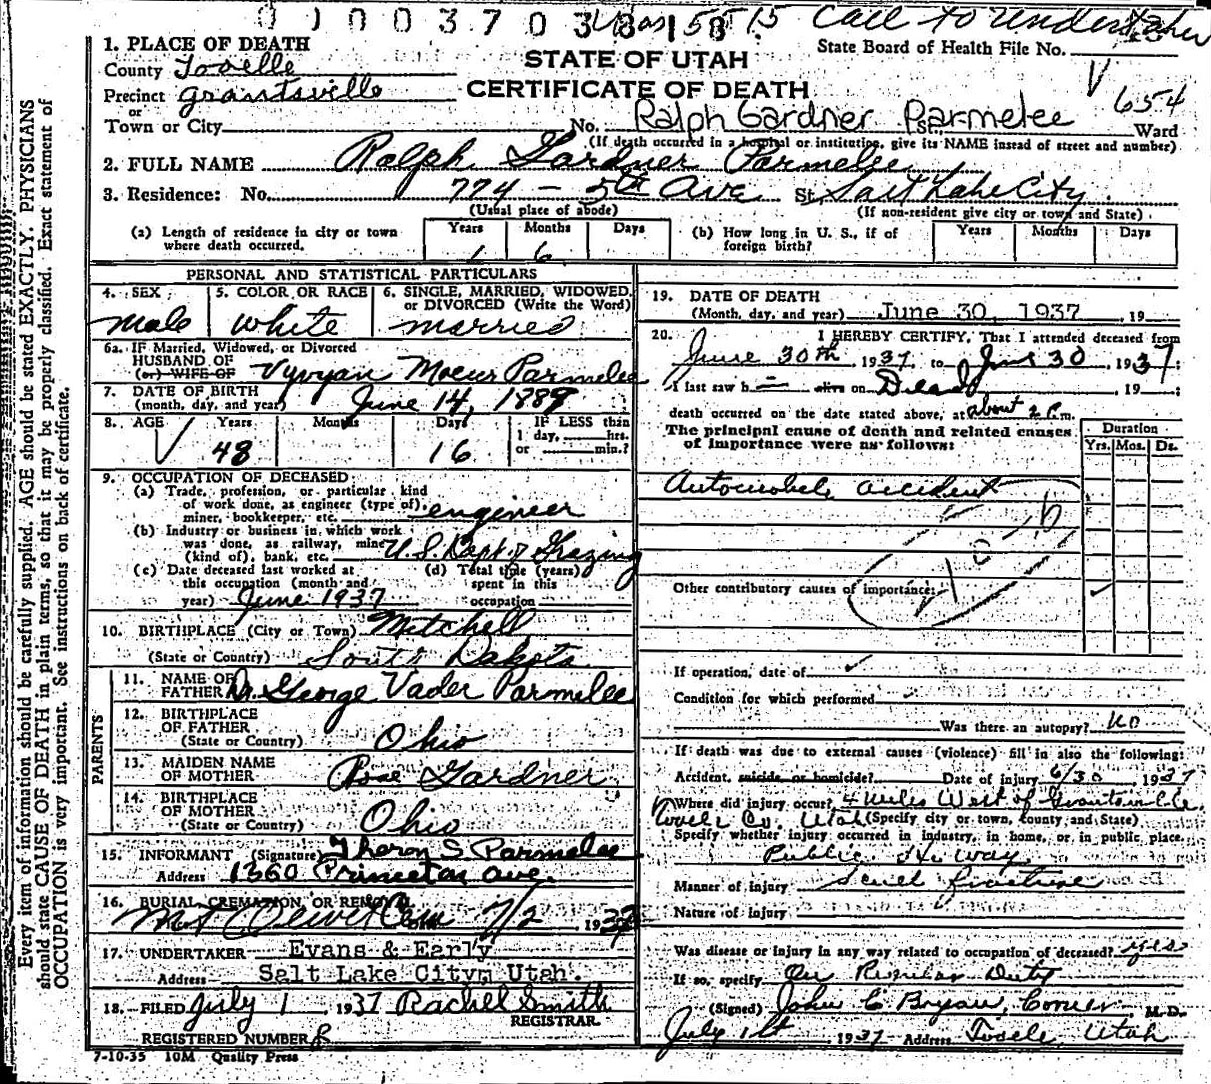 010037033 15 Call to Undertaker
1. PLACE OF DEATH
County Tooelle
Precinct Grantsville
or
Town or City
STATE OF UTAH
CERTIFICATE OF DEATH
State Board of Health File No.
654
No. Ralph Gardner Parmelee St. Ward
(If death occurred in a hospital or institution, give its NAME instead of street and number)
2. FULL NAME Ralph Gardner Parmelee
3. Residence: No. 774 - 5th Ave St. Salt Lake City.
(Usual place of abode) (If non-resident give city or town and State)
(a) Length of residence in city or town where death occurred. Years 1 Months 6 Days
(b) How long in U. S., if of foreign birth? Years Months Days
PERSONAL AND STATISTICAL PARTICULARS
4. SEX Male
5. COLOR OR RACE White
6. SINGLE, MARRIED, WIDOWED, or DIVORCED (Write the Word) married
6a. IF Married, Widowed, or Divorced
HUSBAND OF
(or) WIFE OF Vyvyan Moeur Parmelee
7. DATE OF BIRTH
(month, day, and year) June 14, 1889
8. AGE Years 48 Months Days 16 IF LESS than 1 day, hrs. or min.?
9. OCCUPATION OF DECEASED:
(a) Trade, profession, or particular kind
of work done, as engineer (type of),
miner, bookkeeper, etc. engineer
(b) Industry or business in which work
was done, as railway, mine
(kind of), bank, etc. U.S. Dept of Grazing
(c) Date deceased last worked at
this occupation (month and
year) June 1937
(d) Total time (years)
spent in this
occupation
10. BIRTHPLACE (City or Town) Mitchell
(State or Country) South Dakota
PARENTS
11. NAME OF
FATHER Dr. George Vader Parmelee
12. BIRTHPLACE
OF FATHER
(State or Country) Ohio
13. MAIDEN NAME
OF MOTHER Rose Gardner
14. BIRTHPLACE
OF MOTHER
(State or Country) Ohio
15. INFORMANT (Signature) Theron S. Parmelee
Address 1360 Princeton Ave.
16. BURIAL, CREMATION, OR REMOVAL
Mt Olivet Cem 7/2 1937
17. UNDERTAKER Evans & Early
Address Salt Lake City, Utah.
18. FILED July 1 1937 Rachel Smith
REGISTRAR
REGISTERED NUMBER 8
7-10-35 10M Quality Press
19. DATE OF DEATH
(Month, day, and year) June 30, 1937 , 19
20. I HEREBY CERTIFY, That I attended deceased from
June 30th 1937 to June 30 1937;
I last saw h alive on Dead 19 ;
death occurred on the date stated above, at about 2 P.m.
The principal cause of death and related causes
of importance were as follows:
Duration
Yrs. Mos. Ds.
Automobile accident
Other contributory causes of importance:
If operation, date of
Condition for which performed
Was there an autopsy? no
If death was due to external causes (violence) fill in also the following:
Accident, suicide, or homicide? Date of injury 6/30 1937
Where did injury occur? 4 miles West of Grantsville
Tooele Co. Utah (Specify city or town, county and State)
Specify whether injury occurred in industry, in home, or in public place.
Public Hi way
Manner of injury Scull fracture
Nature of injury
Was disease or injury in any way related to occupation of deceased? yes
If so, specify On Regular Duty
(Signed) John C Bryan, Corner M.D.
July 1st 1937 Address Tooele Utah
Every item of information should be carefully supplied. AGE should be stated EXACTLY. PHYSICIANS
should state CAUSE OF DEATH in plain terms, so that it may be properly classified. Exact statement of
OCCUPATION is very important. See instructions on back of certificate.